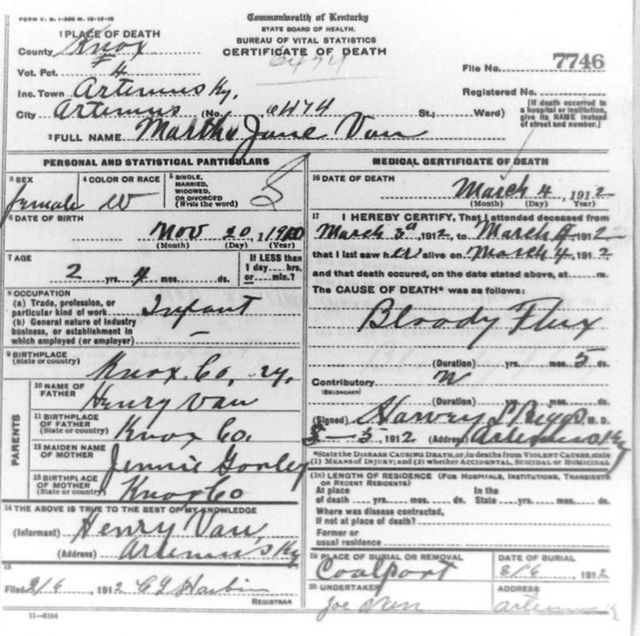 FORM V. S. 1-
Commonwealth of Kentucky
STATE BOARD OF HEALTH.
BUREAU OF VITAL STATISTICS
CERTIFICATE OF DEATH
6474
1 PLACE OF DEATH
County Knox
Vot. Pct. 4
Inc. Town Artemus Ky.
City Artemus (No. 6474 St.; Ward)
File No. 7746
Registered No.
[If death occurred in a hospital or institution, give its NAME instead of street and number.]
2 FULL NAME Martha Jane Van
PERSONAL AND STATISTICAL PARTICULARS
3 SEX
female
4 COLOR OR RACE
W
5 SINGLE, MARRIED, WIDOWED, OR DIVORCED (Write the word)
S
6 DATE OF BIRTH
Nov 20, 1900
(Month) (Day) (Year)
7 AGE
2 yrs. 4 mos. ds.
If LESS than 1 day.... hrs. or.... min.?
8 OCCUPATION
(a) Trade, profession, or particular kind of work Infant
(b) General nature of industry business, or establishment in which employed (or employer) —
9 BIRTHPLACE
(State or country) Knox Co, Ky.
PARENTS
10 NAME OF FATHER Henry Van
11 BIRTHPLACE OF FATHER (State or country) Knox Co.
12 MAIDEN NAME OF MOTHER Jennie
13 BIRTHPLACE OF MOTHER (State or country) Knox Co
14 THE ABOVE IS TRUE TO THE BEST OF MY KNOWLEDGE
(Informant) Henry Van,
(Address) Artemus Ky
15
Filed 3/6, 1912
REGISTRAR
MEDICAL CERTIFICATE OF DEATH
16 DATE OF DEATH
March 4, 1912
(Month) (Day) (Year)
17 I HEREBY CERTIFY, That I attended deceased from
March 3, 1912, to March 4, 1912
that I last saw her alive on March 4, 1912
and that death occured, on the date stated above, at m.
The CAUSE OF DEATH* was as follows:
Bloody Flux
(Duration) yrs. mos. 5 ds.
Contributory
(SECONDARY)
(Duration) yrs. mos. ds.
(Signed) Harvey M.D.
3, 1912 (Address) Artemus Ky
*State the DISEASE CAUSING DEATH, or, in deaths from VIOLENT CAUSES, state (1) MEANS OF INJURY; and (2) whether ACCIDENTAL, SUICIDAL or HOMICIDAL
(18) LENGTH OF RESIDENCE (FOR HOSPITALS, INSTITUTIONS, TRANSIENTS OR RECENT RESIDENTS)
At place of death yrs. mos. ds. In the State yrs. mos. ds.
Where was disease contracted, if not at place of death?
Former or usual residence
19 PLACE OF BURIAL OR REMOVAL
Coalport
DATE OF BURIAL
3/6, 1912
20 UNDERTAKER
Joe
ADDRESS
Artemus Ky